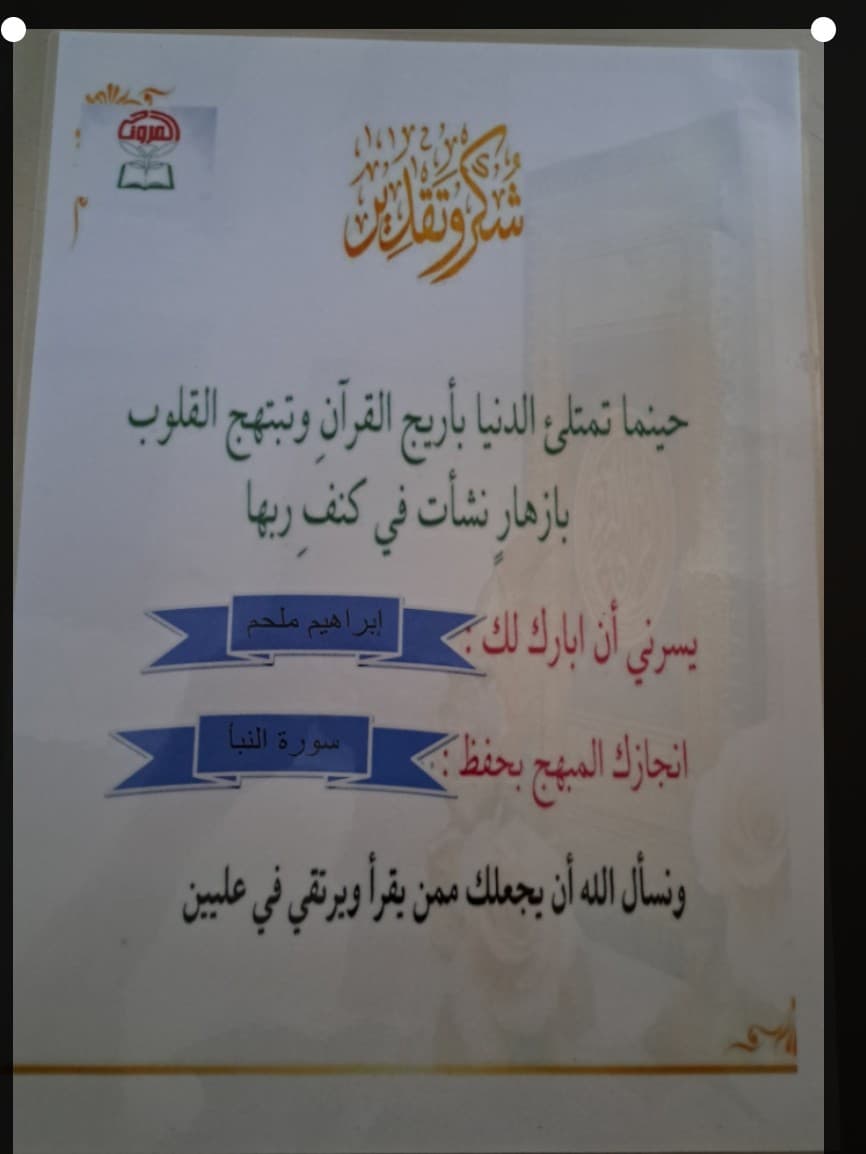 شكر وتقدير
حينما تمتلئ الدنيا بأريج القرآنِ وتبتهج القلوب
بازهارٍ نشأت في كنفِ ربها
يسرني أن ابارك لك : إبراهيم ملحم
انجازك المبهج بحفظ : سورة النبأ
ونسأل الله أن يجعلك ممن يقرأ ويرتقي في عليين